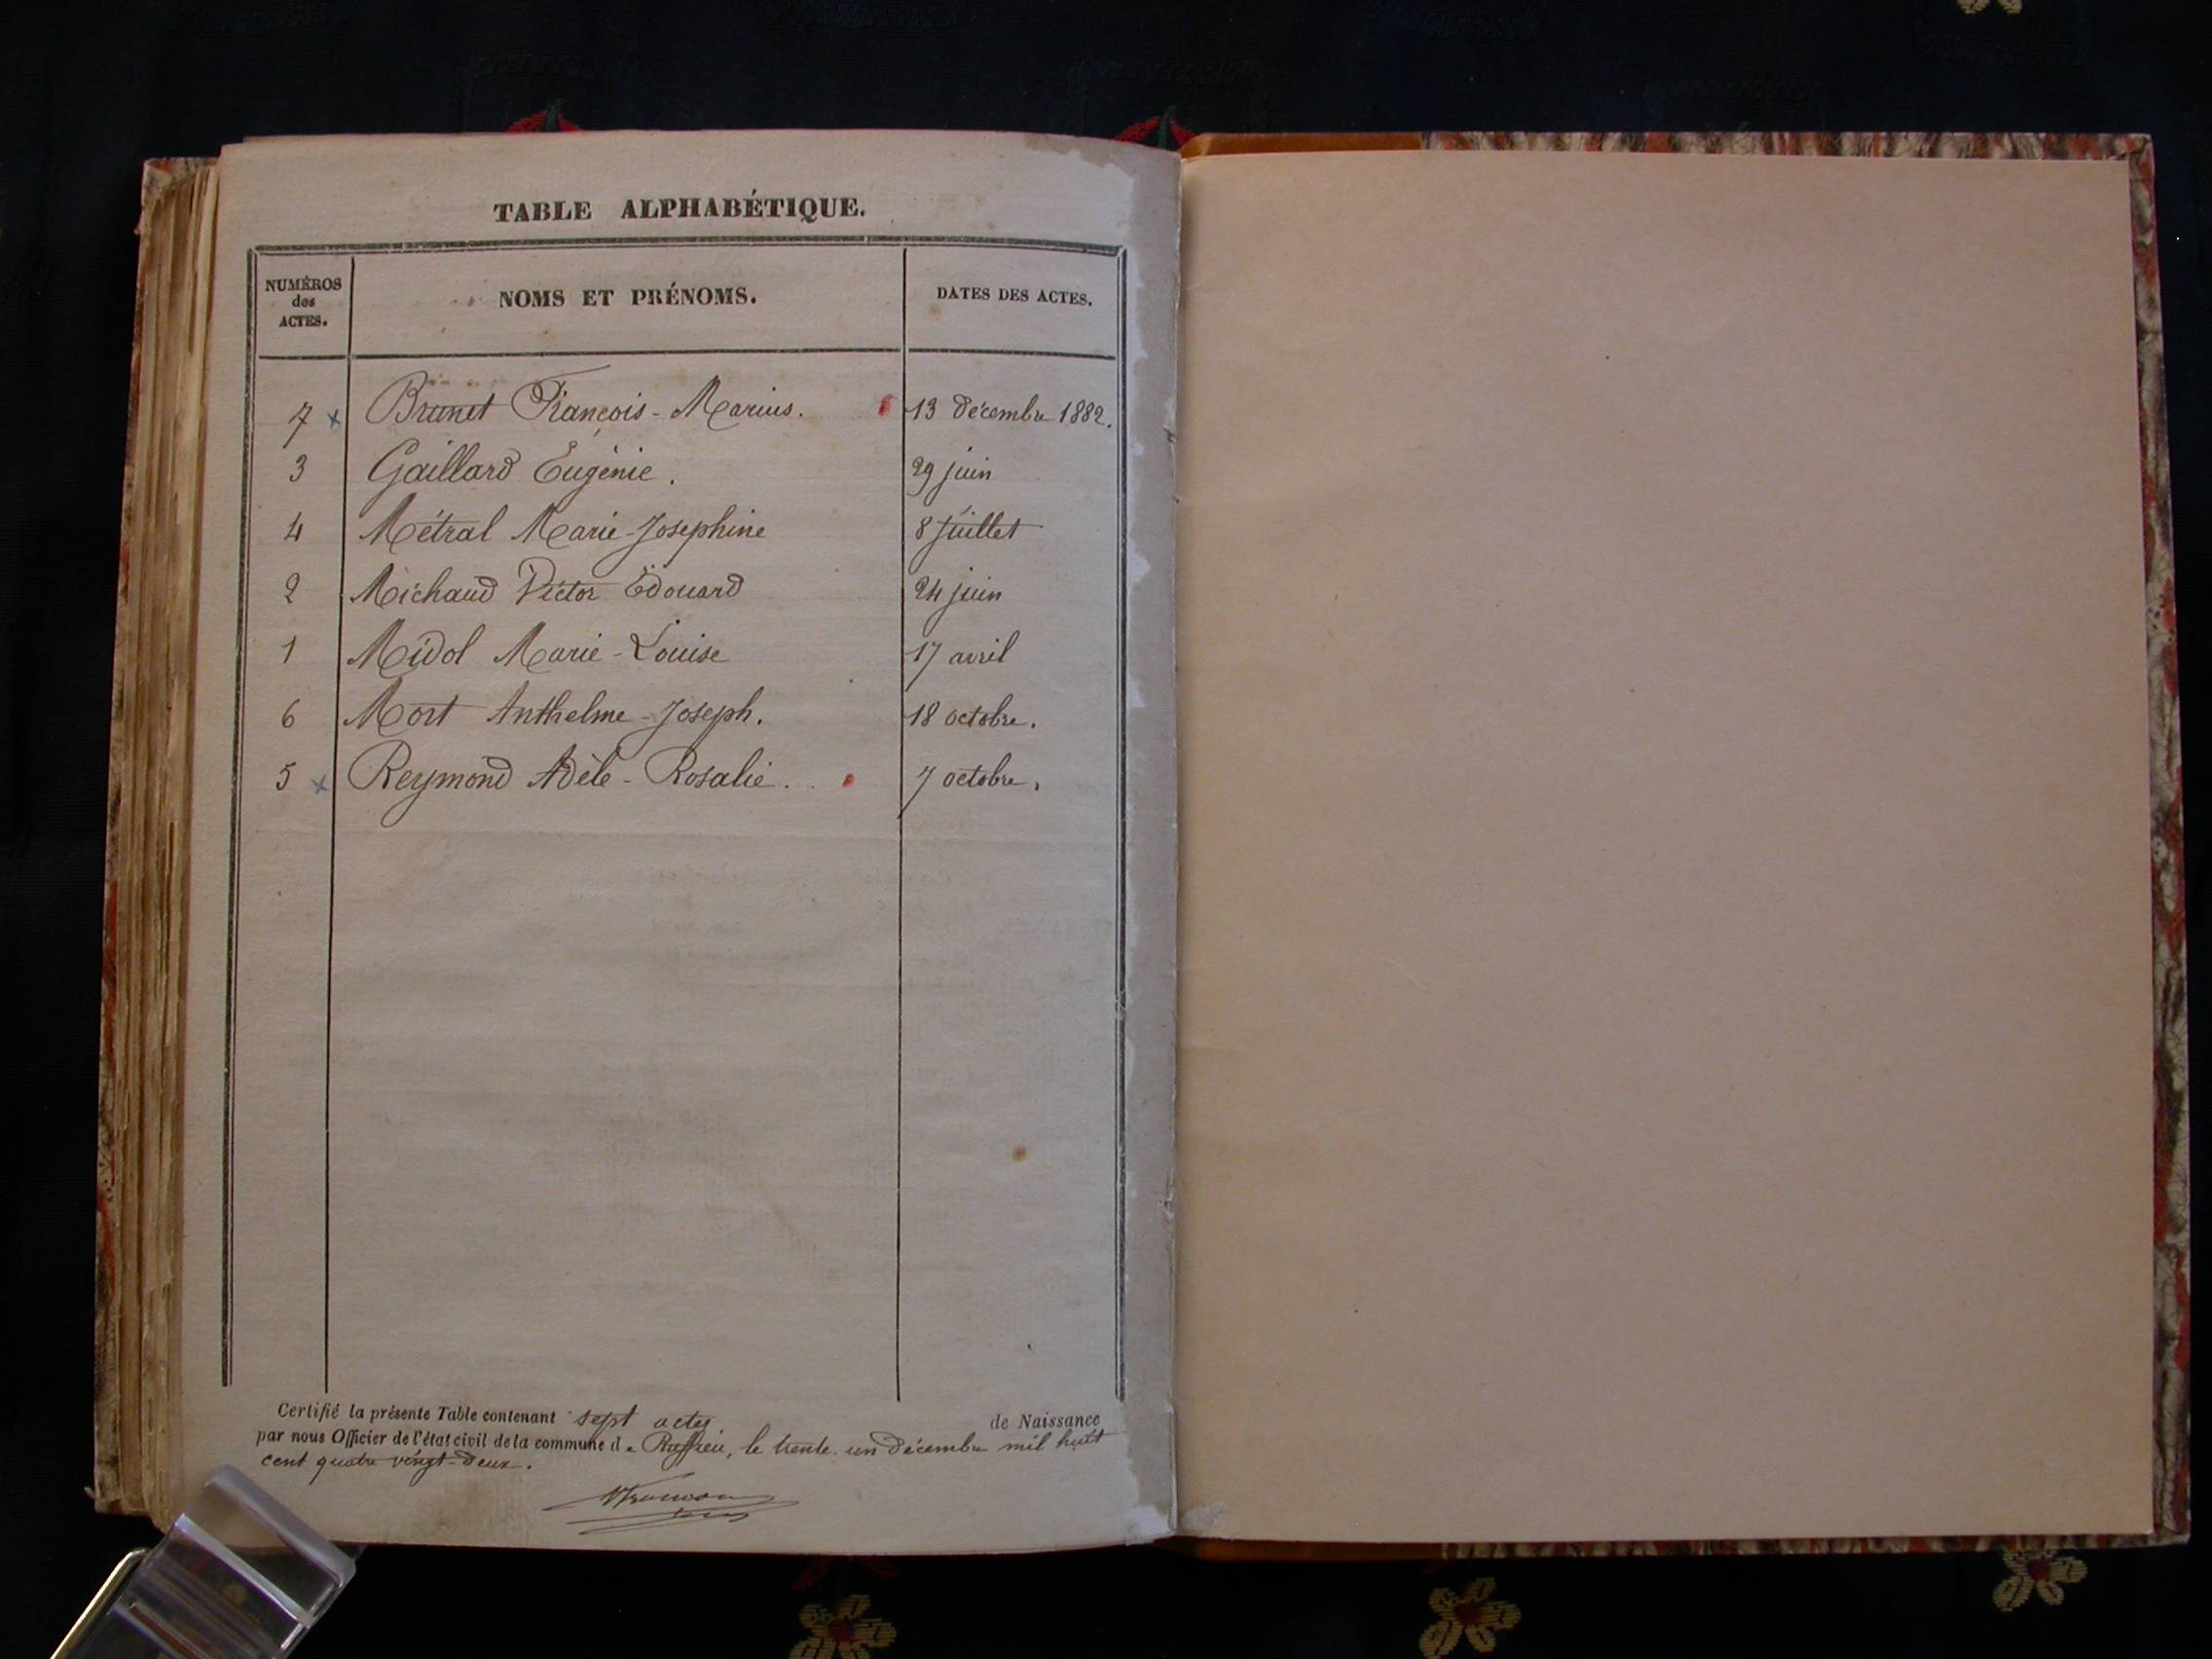 TABLE ALPHABÉTIQUE.
NUMÉROS des ACTES. NOMS ET PRÉNOMS. DATES DES ACTES.
7 x Brunet François-Marius. 13 Décembre 1882.
3 Gaillard Eugénie. 29 juin
4 Métral Marie-Josephine 8 Juillet
2 Michaud Victor Edouard 24 juin
1 Midol Marie-Louise 17 avril
6 Mort Anthelme-Joseph. 18 octobre.
5 x Reymond Adèle-Rosalie. 7 octobre.
Certifié la présente Table contenant sept actes de Naissance
par nous Officier de l'état civil de la commune de Ruffieu, le trente un Décembre mil huit
cent quatre vingt-deux.